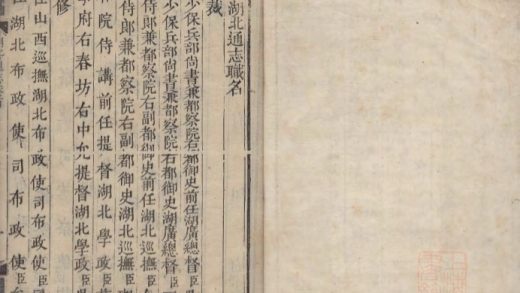 湖北通志職名
裁
少保兵部尚書兼都察院右都御史前任湖廣總督臣
少保兵部尚書兼都察院右都御史湖廣總督臣
侍郎兼都察院右副都御史前任湖北巡撫臣
侍郎兼都察院右副都御史湖北巡撫臣
院侍講前任提督湖北學政臣
學府右春坊右中允提督湖北學政臣
修
任山西巡撫湖北布政使司布政使臣
湖北布政使司布政使臣